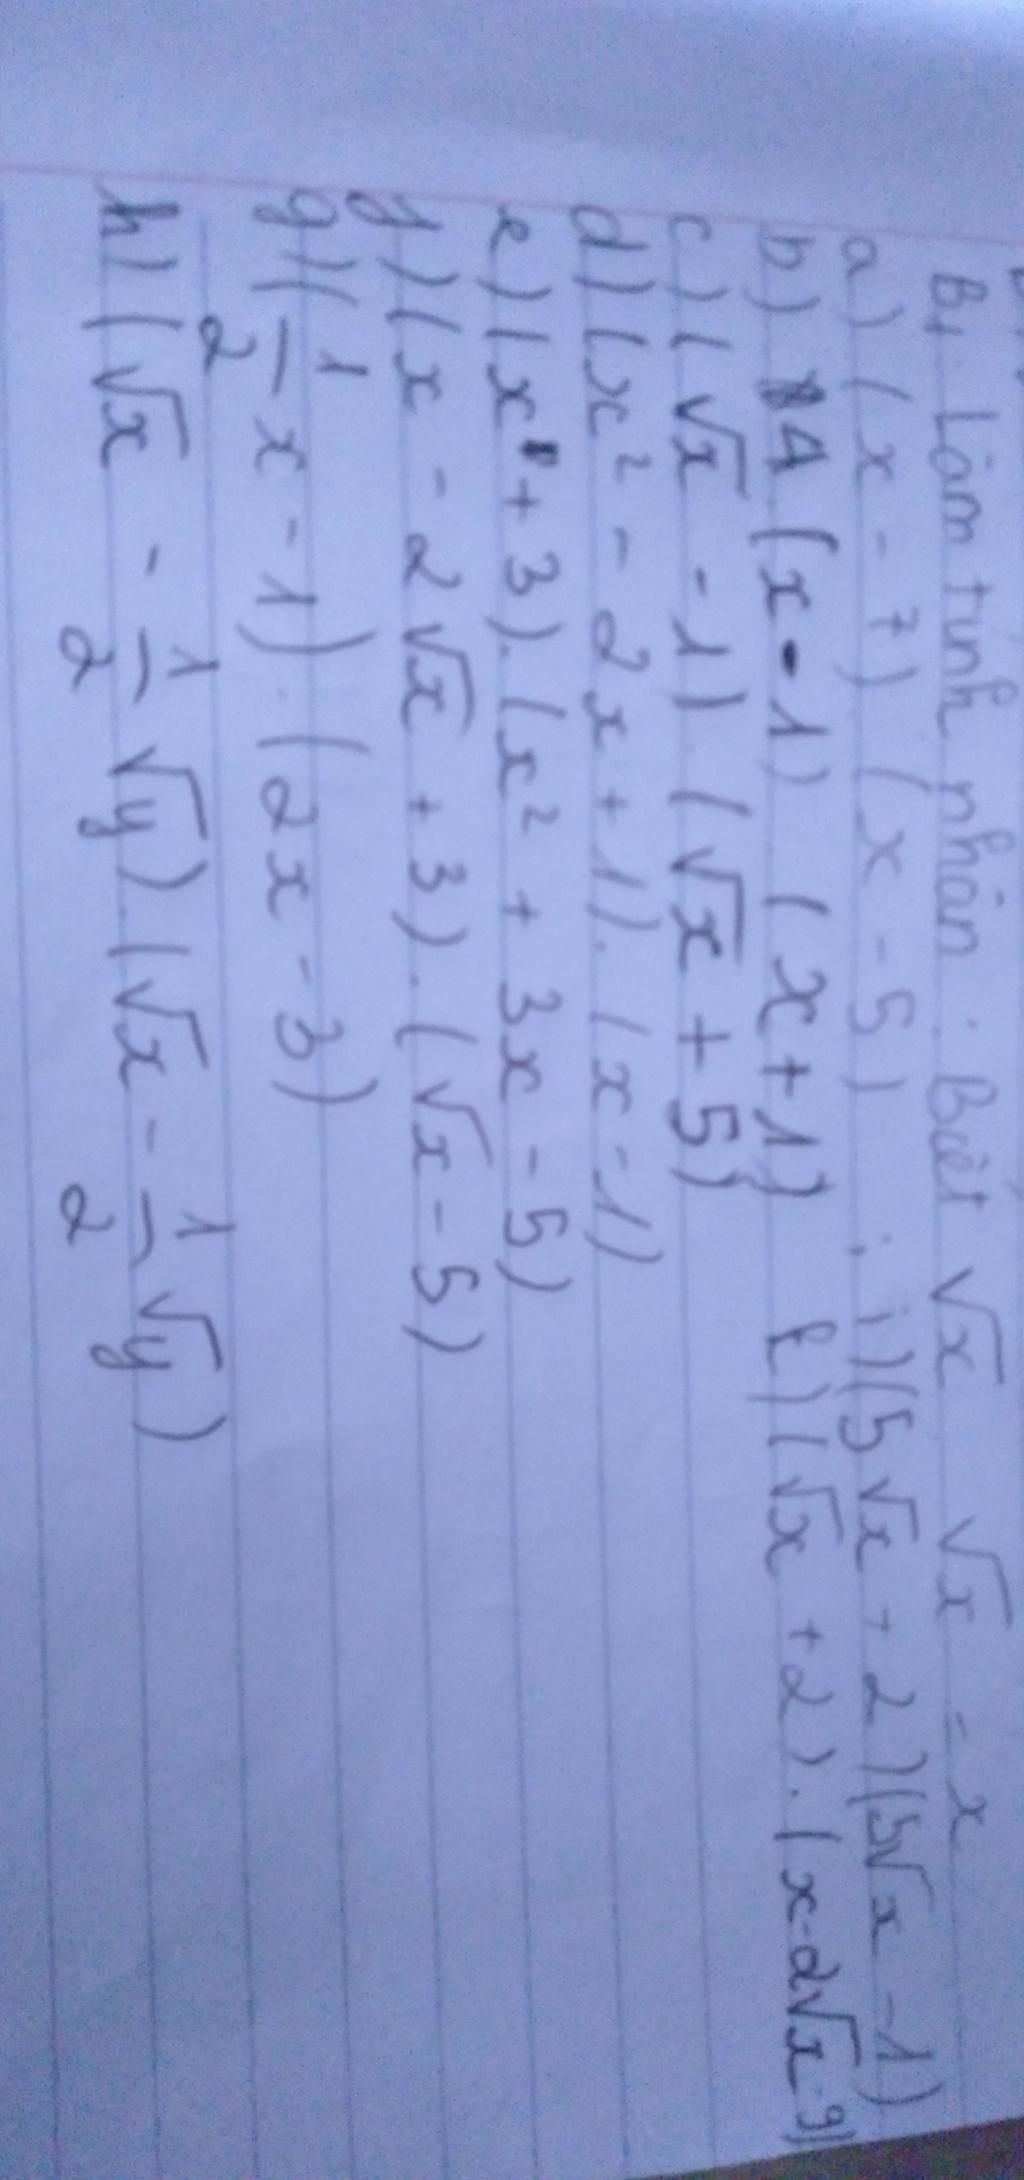 B1. Làm tính nhân: Biết √x √x = x
a) (x - 7) (x - 5) ; i) (5√x + 2) (3√x - 1)
b) 4 (x - 1) (x + 1) k) (√x + 2). (x - 2√x - 9)
c) (√x - 1) (√x + 5)
d) (x² - 2x + 1). (x - 1)
e) (x + 3). (x² + 3x - 5)
g) (x - 2√x + 3). (√x - 5)
g) (1/2 x - 1). (2x - 3)
h) (√x - 1/2 √y). (√x - 1/2 √y)